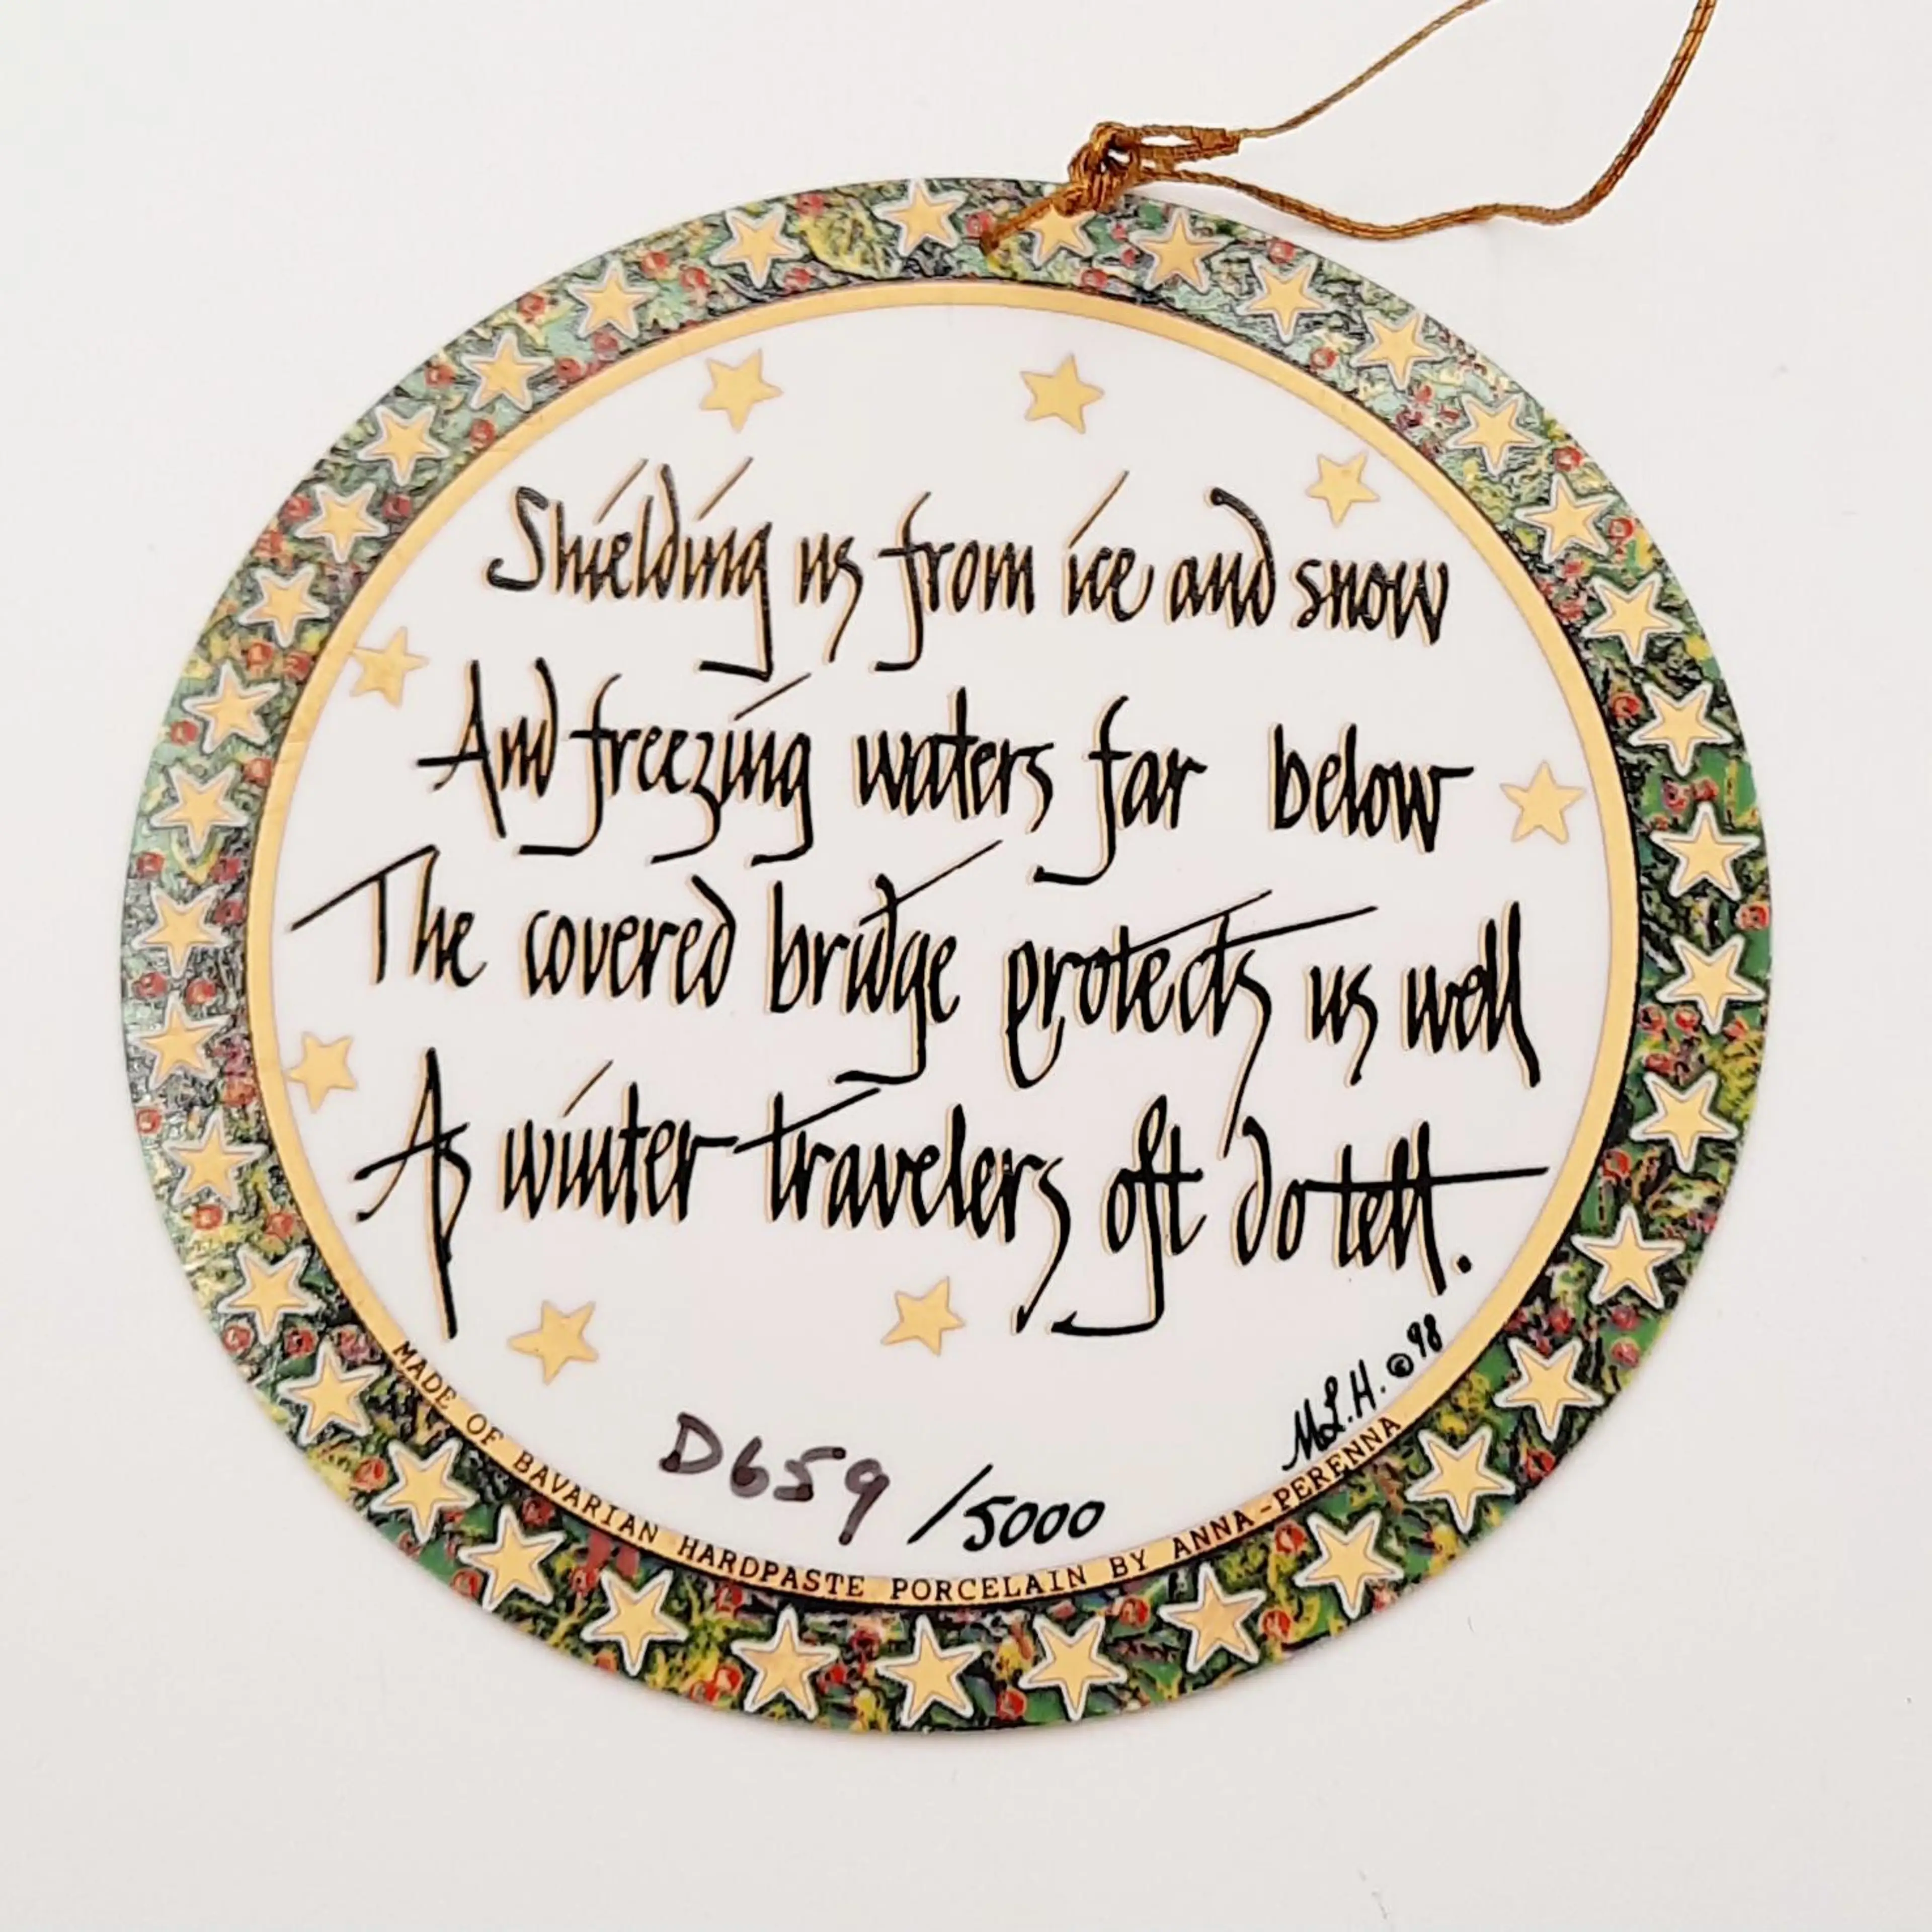 Shielding us from ice and snow
And freezing waters far below
The covered bridge protects us well
As winter travelers oft do tell.
M.L.H. © 98
D659 /5000
MADE OF BAVARIAN HARDPASTE PORCELAIN BY ANNA-PERENNA